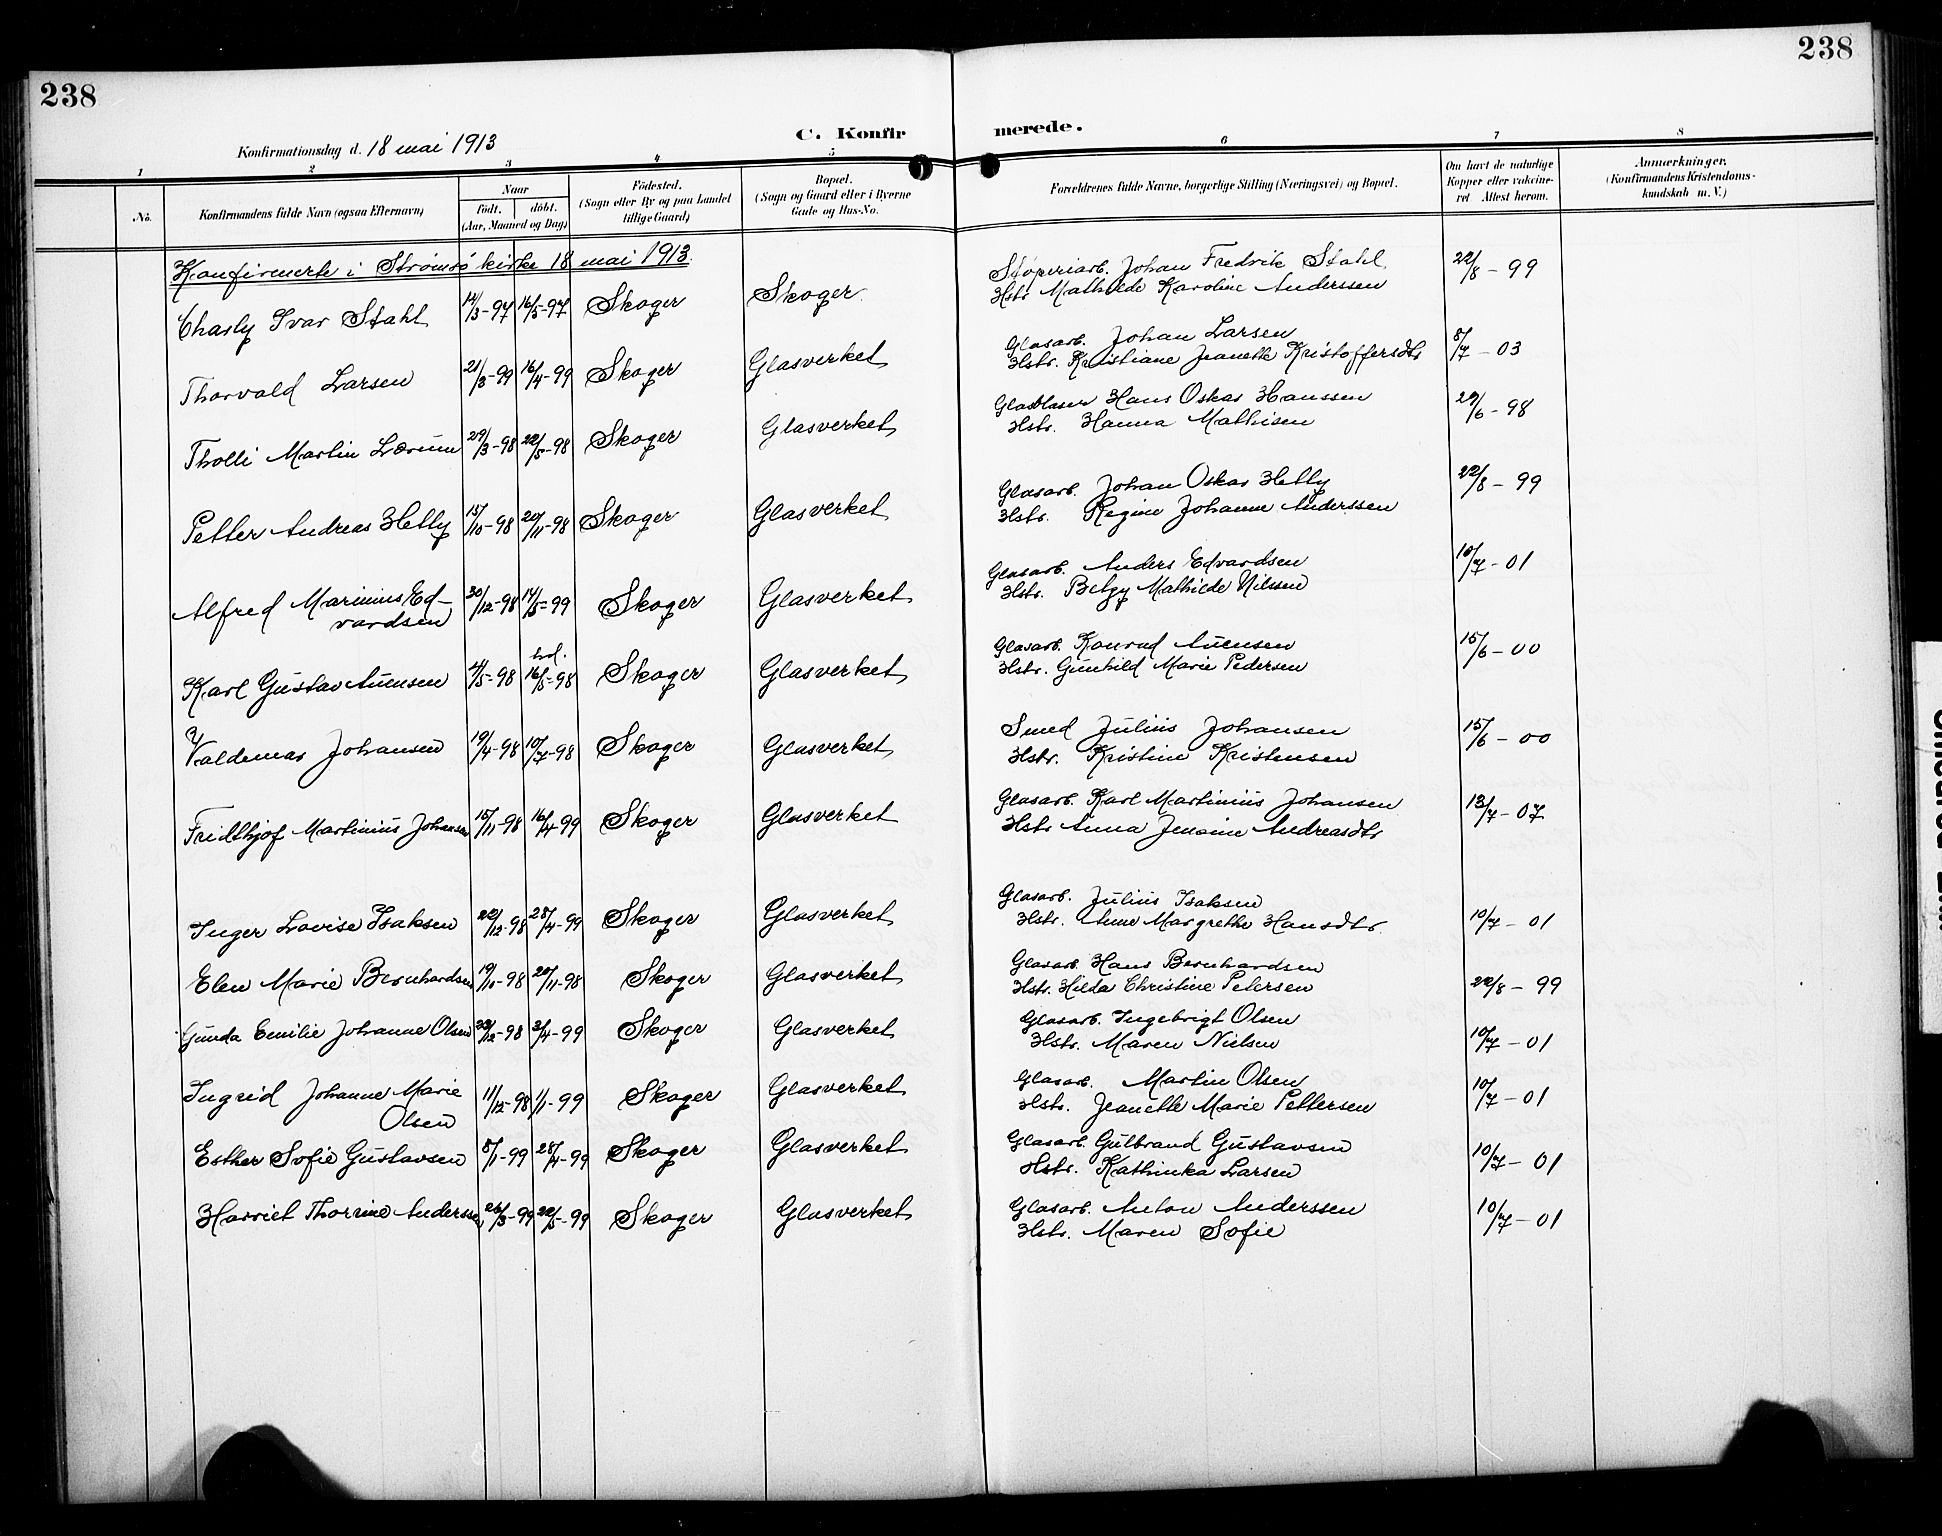 238
238
Konfirmationsdag d. 18 mai 1913
C. Konfir
merede.
1
2
3
4
5
6
7
8
No.
Konfirmandens fulde Navn (ogsaa Efternavn)
Naar
født. døbt.
(Aar, Maaned og Dag)
Fødested.
(Sogn eller By og paa Landet
tillige Gaard)
Bopæl.
(Sogn og Gaard eller i Byerne
Gade og Hus-No.
Forældrenes fulde Navne, borgerlige Stilling (Næringsvei) og Bopæl.
Om havt de naturlige
Kopper eller vakcine-
ret Attest herom.
Anmærkninger.
(Konfirmandens Kristendoms-
kundskab m. V.)
Konfirmerte i Strømsø kirke 18 mai 1913.
Charly Ivar Stahl 14/3-97 16/5-97 Skoger Skoger Støperiarb. Johan Fredrik Stahl 22/8-99
Hstr. Mathilde Karoline Anderssen
Thorvald Larsen 21/3-99 16/4-99 Skoger Glasverket Glasarb. Johan Larsen 8/7-03
Hstr. Kristiane Jeanette Kristoffersdtr
Tholli Martin Lærum 29/3-98 22/5-98 Skoger Glasverket Glasblaser Hans Oskar Hanssen 29/6-98
Hstr. Hanna Mathisen
Petter Andreas Helly 15/10-98 20/11-98 Skoger Glasverket Glasarb. Johan Oskar Helly 22/8-99
Hstr. Regine Johanne Anderssen
Alfred Marinius Ed- 30/12-98 14/5-99 Skoger Glasverket Glasarb. Anders Edvardsen 10/7-01
vardsen Hstr. Betzy Mathilde Nilssen
Karl Gustav Auensen 4/5-98 16/5-98 Skoger Glasverket Glasarb. Konrad Auensen 15/6-00
Hstr. Gunhild Marie Pedersen
Valdemar Johansen 19/4-98 10/7-98 Skoger Glasverket Smed Julius Johansen 15/6-00
Hstr. Kristine Kristensen
Fridthjof Martinius Johansen 15/11-98 16/4-99 Skoger Glasverket Glasarb. Karl Martinius Johansen 13/7-07
Hstr Anna Jensine Andreasdtr
Inger Lovise Isaksen 22/12-98 28/4-99 Skoger Glasverket Glasarb. Julius Isaksen 10/7-01
Hstr. Anne Margrethe Hansdtr.
Elen Marie Bernhardsen 19/10-98 20/11-98 Skoger Glasverket Glasarb. Hans Bernhardsen 22/8-99
Hstr. Hilda Christine Petersen
Gunda Emilie Johanne Olsen 23/12-98 3/4-99 Skoger Glasverket Glasarb. Ingebrigt Olsen 10/7-01
Hstr. Maren Nielsen
Ingrid Johanne Marie 11/12-98 1/1-99 Skoger Glasverket Glasarb. Martin Olsen 10/7-01
Olsen Hstr. Jeanette Marie Pettersen
Esther Sofie Gustavsen 8/1-99 28/4-99 Skoger Glasverket Glasarb. Gulbrand Gustavsen 10/7-01
Hstr. Kathinka Larsen
Harriet Thorine Anderssen 26/3-99 22/5-99 Skoger Glasverket Glasarb. Anton Anderssen 10/7-01
Hstr. Maren Sofie